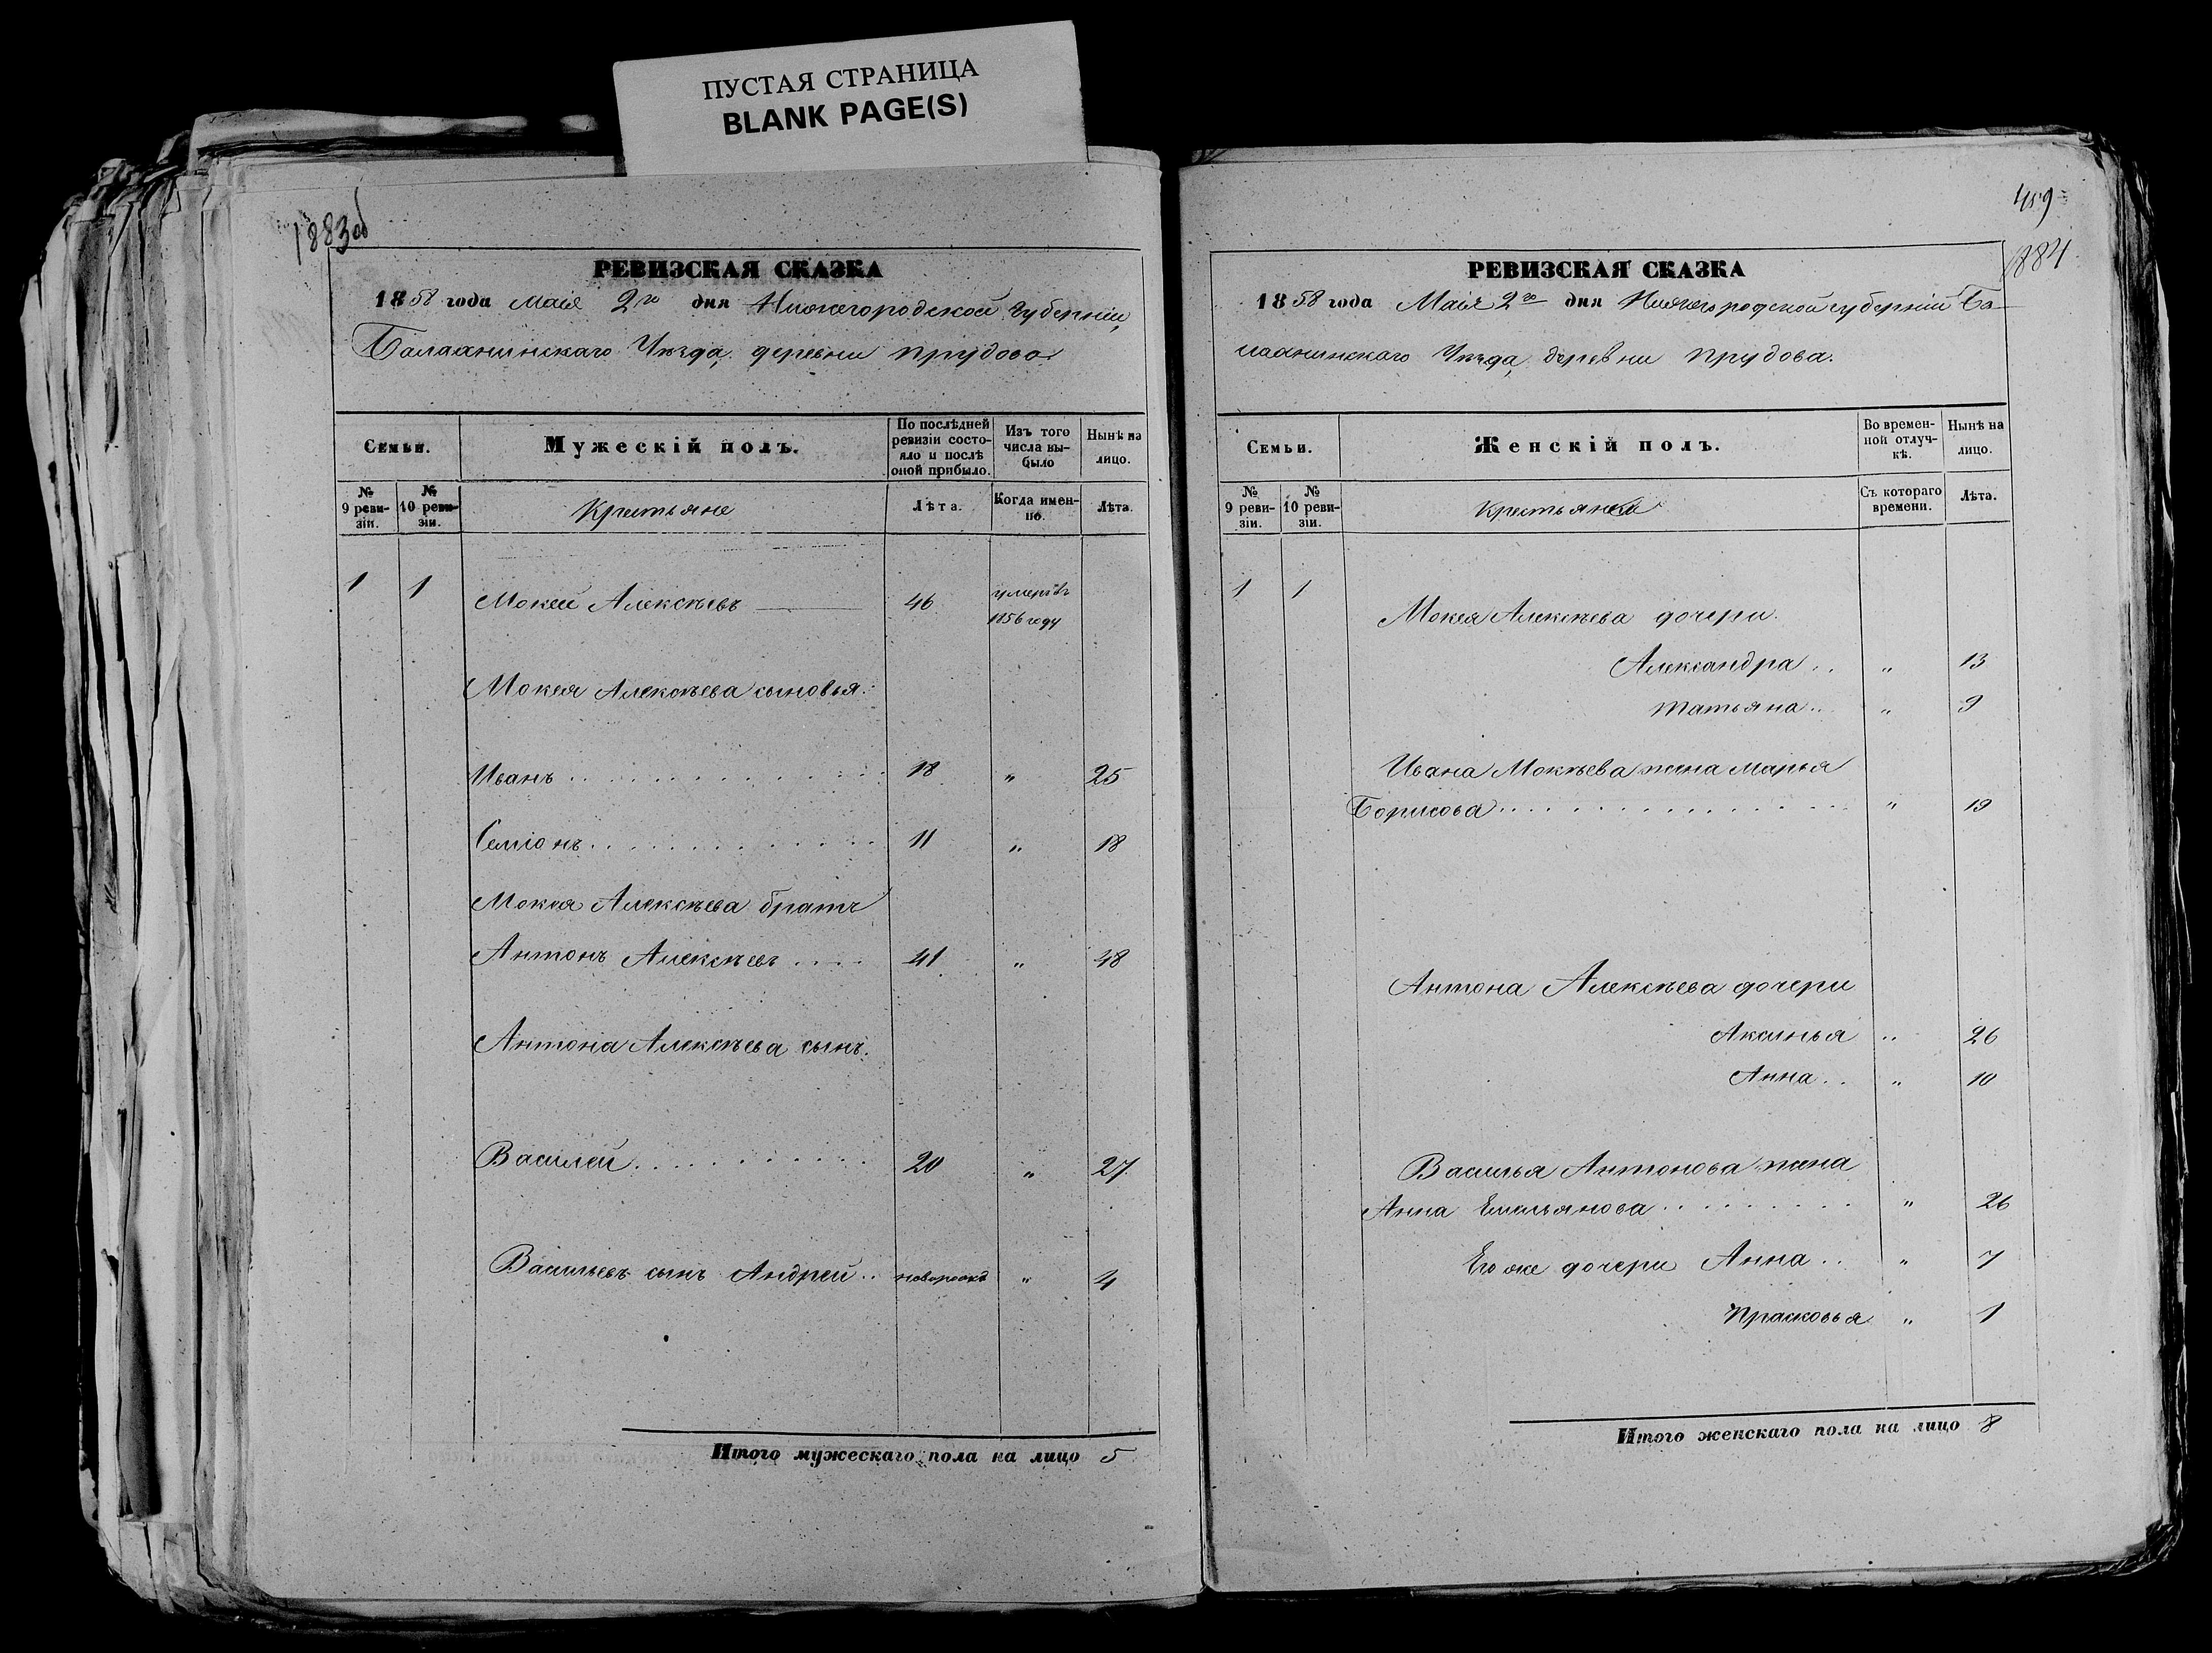 ПУСТАЯ СТРАНИЦА
BLANK PAGE(S)
1883об
РЕВИЗСКАЯ СКАЗКА
1858 года Маія 2го дня Нижегородской Губерніи,
Балахнинскаго Уѣзда, деревни Прудова.
Семьи.
Мужескій полъ.
По послѣдней ревизіи состояло и послѣ оной прибыло.
Изъ того числа выбыло
Нынѣ на лицо.
№ 9 ревизіи.
№ 10 ревизіи.
Крестьяне
Лѣта.
Когда именно.
Лѣта.
1 1 Мокей Алексѣевъ 46 умеръ въ 1856 году
Мокея Алексѣева сыновья:
Иванъ 18 " 25
Семіонъ 11 " 18
Мокея Алексѣева братъ
Антонъ Алексѣевъ 41 " 48
Антона Алексѣева сынъ.
Василей 20 " 27
Васильевъ сынъ Андрей новорожд " 4
Итого мужескаго пола на лицо 5
459
1884
РЕВИЗСКАЯ СКАЗКА
1858 года Маія 2го дня Нижегородской губерніи Ба-
лахнинскаго Уѣзда, деревни Прудова.
Семьи.
Женскій полъ.
Во временной отлучкѣ.
Нынѣ на лицо.
№ 9 ревизіи.
№ 10 ревизіи.
Крестьянки
Съ котораго времени.
Лѣта.
1 1 Мокея Алексѣева дочери.
Александра " 13
Татьяна " 9
Ивана Мокѣева жена Марья
Борисова " 19
Антона Алексѣева дочери
Аксинья " 26
Анна " 10
Василья Антонова жена
Анна Емельянова " 26
Его же дочери Анна " 7
Прасковья " 1
Итого женскаго пола на лицо 8